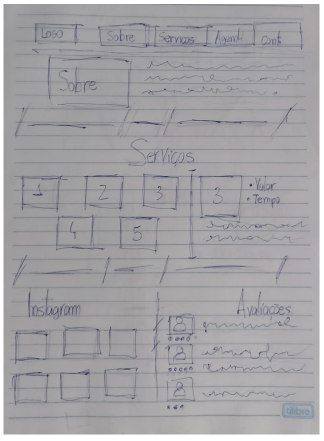 Logo Sobre Serviços Agend. Cont
Sobre
Serviços
1 2 3 3 • Valor
• Tempo
4 5
Instagram Avaliações
tilibra